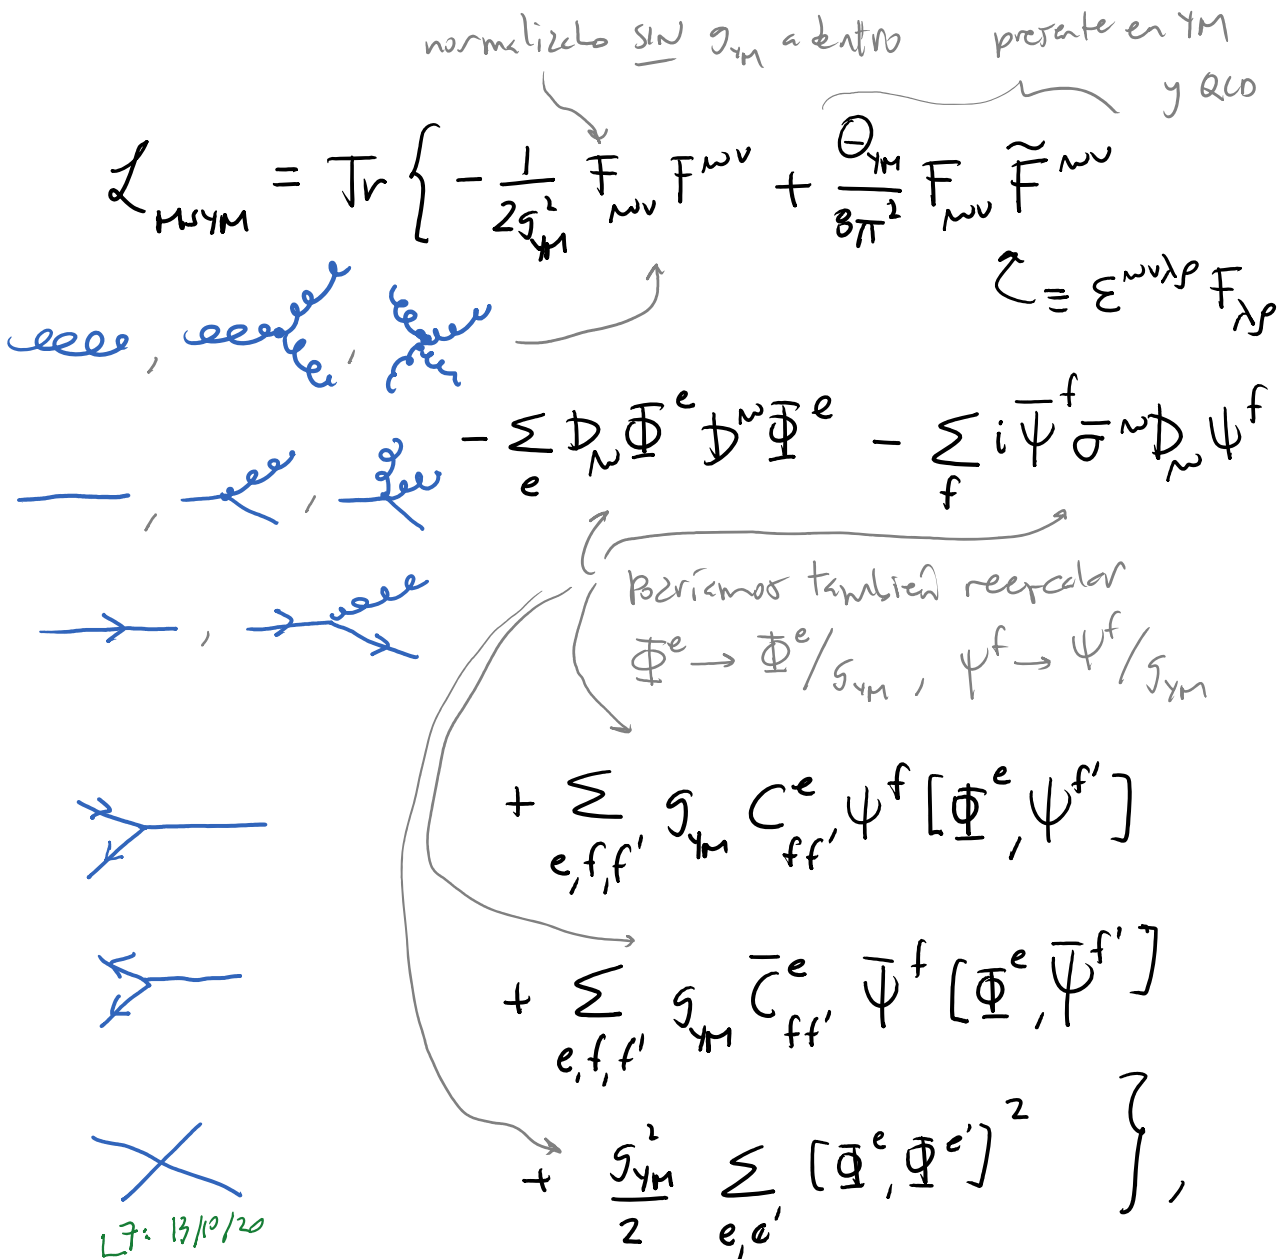 normalizado SIN g_YM adentro
presente en YM
y QCD
ℒ_MSYM = Tr { - 1/(2g²_YM) F_μν F^μν + Θ_YM/(8π²) F_μν F̃^μν
≡ ε^μνλρ F_λρ
- Σ_e D_μ Φ^e D^μ Φ^e - Σ_f i Ψ̄^f σ̄^μ D_μ Ψ^f
Podríamos también reescalar
Φ^e → Φ^e/g_YM , Ψ^f → Ψ^f/g_YM
+ Σ_{e,f,f'} g_YM C^e_{ff'} Ψ^f [Φ^e, Ψ^f']
+ Σ_{e,f,f'} g_YM C̄^e_{ff'} Ψ̄^f [Φ^e, Ψ̄^f']
+ g²_YM/2 Σ_{e,e'} [Φ^e, Φ^e']² } ,
L7: 13/10/20